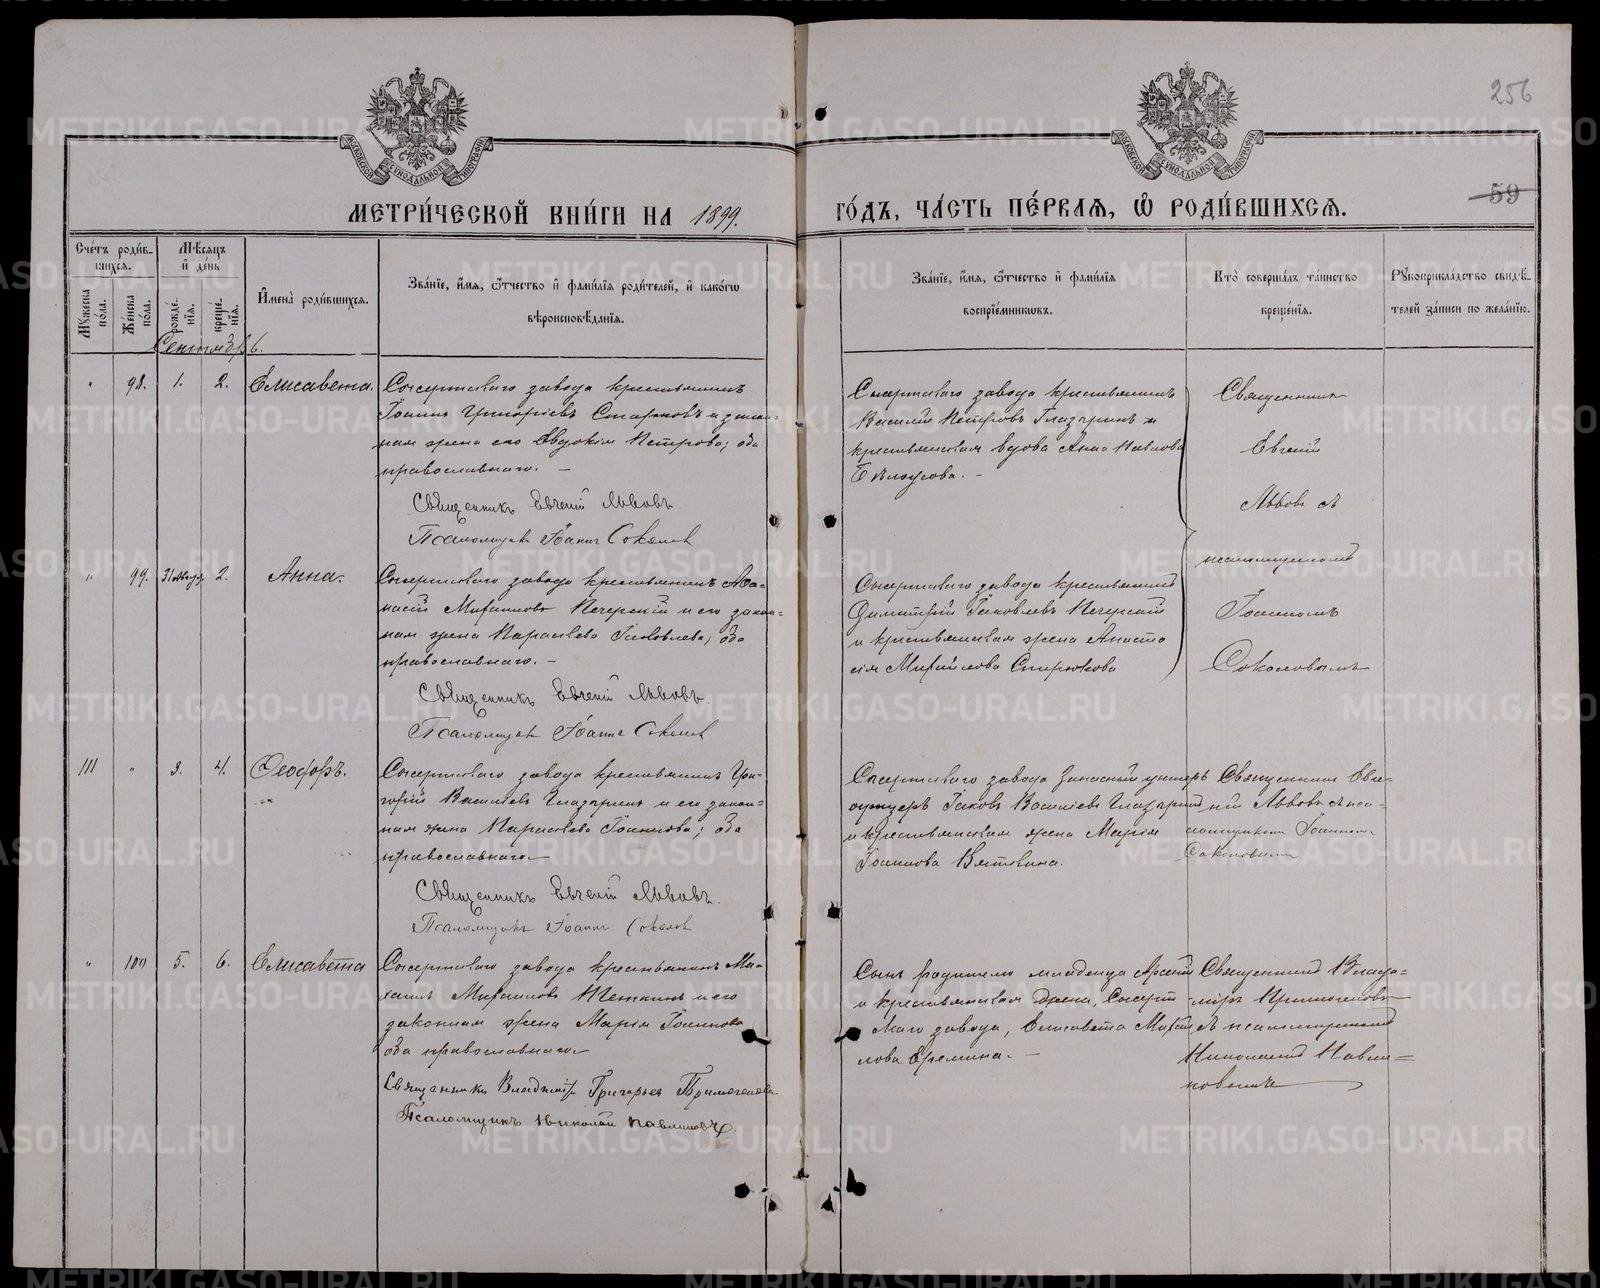 256
59
МОСКОВСКОЙ СѴНОДАЛЬНОЙ ТИПОГРАФІИ
МОСКОВСКОЙ СѴНОДАЛЬНОЙ ТИПОГРАФІИ
МЕТРИ́ЧЕСКОЙ КНИ́ГИ НА 1899.
ГО́ДЪ, ЧА́СТЬ ПЕ́РВАЯ, Ѡ РОДИ́ВШИХСЯ.
Сче́тъ роди́вшихся.
Му́жеска по́ла.
Же́нска по́ла.
Мѣ́сяцъ и де́нь
рожде́нія.
креще́нія.
Имена̀ роди́вшихся.
Зва́ніе, и́мя, ѻ́тчество и фами́лія роди́телей, и како́гѡ
вѣроисповѣ́данія.
Зва́ніе, и́мя, ѻ́тчество и фами́лія
воспріе́мниковъ.
Кто̀ соверша́лъ та́инство
креще́нія.
Рукоприкла́дство свидѣ́-
телей за́писи по жела́нію.
Сентябрь.
" 98. 1. 2. Елисавета.
Сысертскаго завода крестьянинъ
Іоаннъ Григоріевъ и закон-
ная жена его Евдокія Петрова; оба
православнаго. –
Священникъ Евгеній Львовъ.
Псаломщикъ Іоаннъ Соколовъ
Сысертскаго завода крестьянинъ
Василій Петровъ Глазыринъ и
крестьянская вдова Анна Павлова
Бѣлоусова. –
Священникъ
Евгеній
Львовъ съ
псаломщикомъ
Іоанномъ
Соколовымъ
" 99. 31 Авг. 2. Анна.
Сысертскаго завода крестьянинъ Афа-
насій Михаиловъ Печерскій и его закон-
ная жена Параскева Іаковлева; оба
православнаго. –
Священникъ Евгеній Львовъ.
Псаломщикъ Іоаннъ Соколовъ
Сысертскаго завода крестьянинъ
Димитрій Іаковлевъ Печерскій
и крестьянская жена Анаста
сія Михайлова
111 " 3. 4. Ѳеодоръ.
Сысертскаго завода крестьянинъ Гри-
горій Василіевъ Глазыринъ и его закон-
ная жена Параскева Іоаннова; оба
православнаго
Священникъ Евгеній Львовъ.
Псаломщикъ Іоаннъ Соколовъ
Сысертскаго завода запасный унтеръ
офицеръ Іаковъ Василіевъ Глазыринъ
и крестьянская жена Марія
Іоаннова
Священникъ Евге-
ній Львовъ съ пса-
ломщикомъ Іоанномъ
Соколовымъ
" 100 5. 6. Елисавета
Сысертскаго завода крестьянинъ Ми-
хаилъ Михаиловъ и его
законная жена Марія Іоаннова
оба православнаго
Священникъ Владиміръ Григорьевъ Примогеновъ
Псаломщикъ Николай Павлиновъ.
Сынъ родителя младенца Арсеній
и крестьянская Сысерт
скаго завода, Елисавета Михаи
лова Еремина. –
Священникъ Влади-
міръ Примогеновъ
съ псаломщикомъ
Николаемъ Павли-
новымъ
METRIKI.GASO-URAL.RU